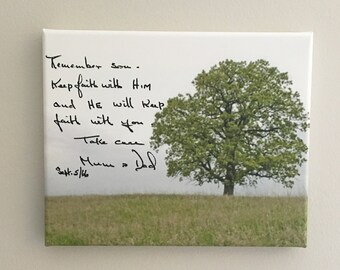 Remember son -
Keep faith with HIM
and HE will keep
faith with you
Take care
Mum & Dad
Sept. 5/66